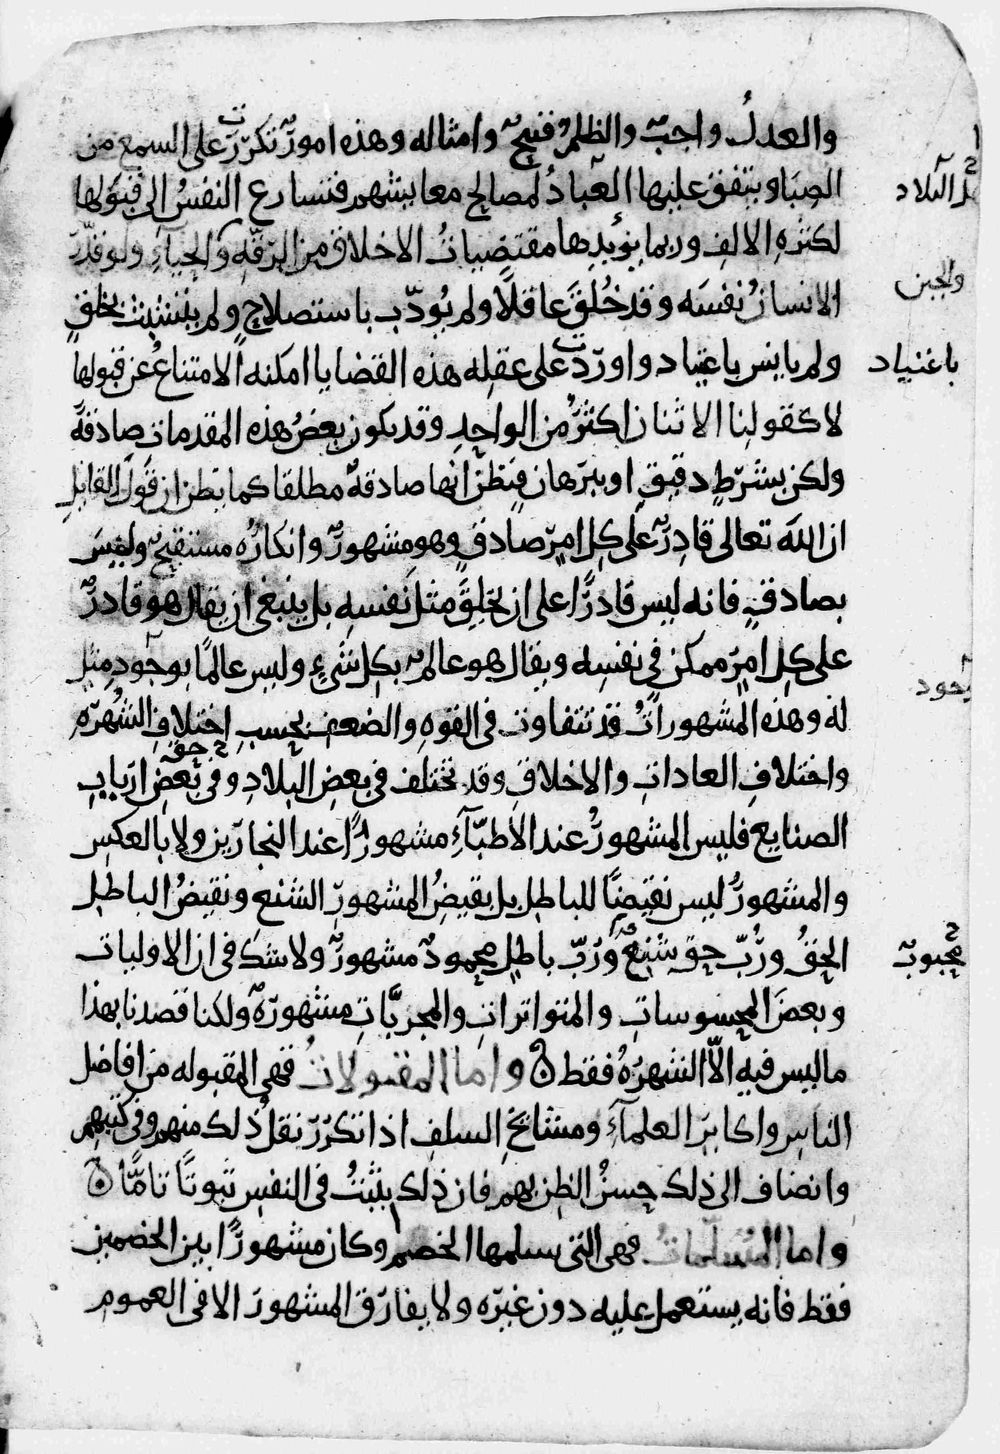 والعدلُ واجبٌ والظلمُ قبيحٌ وامثاله وهذه امورٌ تكرّرت على السمع من
الصبا ويتفق عليها العبادُ لمصالح معايشهم فتسارع النفسُ الى قبولها
لكثره الالف وربما يؤيدها مقتضياتُ الاخلاق من الرقّهِ والحياءِ ولو قدّر
الانسانُ نفسَه وقد خُلقَ عاقلاً ولم يُودّب باستصلاحٍ ولم يتشبث بخلقٍ
ولم يانس باعتياد واورّدت على عقله هذه القضايا امكنه الامتناعُ عن قبولها
لا كقولنا الاثنان اكثرُ من الواحدِ وقد يكون بعضُ هذه المقدمات صادقةً
ولكن بشرطٍ دقيقٍ او ببرهان فيظنّ انها صادقةٌ مطلقا كما يظن ان قولَ القايلِ
ان اللهَ تعالى قادرٌ على كل امرٍ صادقٍ وهو مشهورٌ وانكارُه مستقبحٌ وليسَ
بصادقٍ فانه ليس قادرًا على ان يخلقَ مثلَ نفسِه بل ينبغى ان يقال هو قادرٌ
على كل امرٍ ممكن في نفسِه ويقال هو عالمٌ بكل شيءٍ وليس عالمًا بوجودِ مثلٍ
له وهذه المشهوراتُ قد تتفاوت فى القوه والضعف بحسبِ اختلافِ الشهره
واختلافِ العاداتِ والاخلاقِ وقد تختلف في بعضِ البلادِ وفى حقِ بعض اربابِ
الصنايع فليس المشهورُ عند الأطبّاءِ مشهورًا عند النجارين ولا بالعكس
والمشهورُ ليس نقيضًا للباطلِ بل نقيضُ المشهورِ الشنع ونقيضُ الباطل
الحقُ ورُبّ حق شنعٌ ورُبّ باطلٍ محمودٌ مشهورٌ ولا شك فى ان الاوليات
وبعضَ المحسوساتِ والمتواتراتِ والمجرّباتِ مشهورةٌ ولكنا قصدنا بهذا
ما ليس فيه الّا الشهرةُ فقط ۞ واما المقبولاتُ فهى المقبوله من افاضل
الناس واكابر العلماءِ ومشايخ السلف اذا تكرّر نقلُ ذلك منهم وفى كتبهم
وانضاف الى ذلك حسنُ الظن بهم فان ذلك يثبتُ فى النفس ثبوتًا تامًا ۞
واما المسلّماتُ فهى التى سلمها الخصم او كان مشهورًا بين الخصمين
فقط فانه يستعمل عليه دون غيره ولا يفارق المشهورَ الا فى العموم
البلاد
والجبن
باعتياد
وجود
محبوبٌ